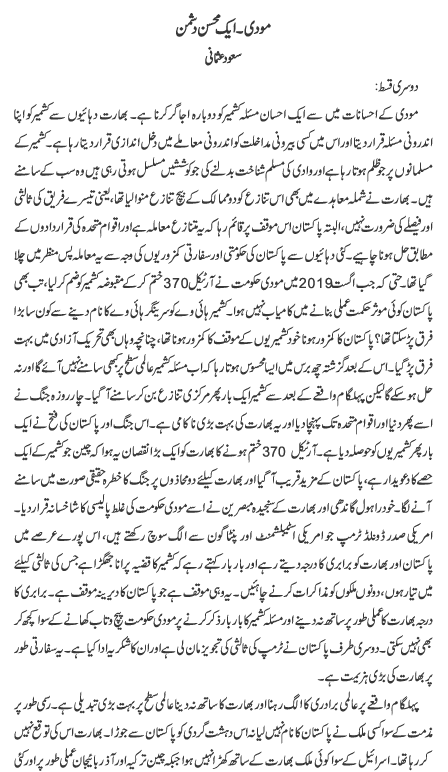 مودی۔ ایک محسن دشمن
سعود عثمانی
دوسری قسط:
مودی کے احسانات میں سے ایک احسان مسئلہ کشمیر کو دوبارہ اجاگر کرنا ہے۔ بھارت دہائیوں سے کشمیر کو اپنا
اندرونی مسئلہ قرار دیتا اور اس میں کسی بیرونی مداخلت کو اندرونی معاملے میں دخل اندازی قرار دیتا رہا ہے۔ کشمیر کے
مسلمانوں پر جو ظلم ہوتا رہا ہے اور وادی کی مسلم شناخت بدلنے کی جو کوششیں مسلسل ہوتی رہی ہیں وہ سب کے سامنے
ہیں۔ بھارت نے شملہ معاہدے میں بھی اس تنازع کو دو ممالک کے بیچ تنازع منوا لیا تھا، یعنی تیسرے فریق کی ثالثی
اور فیصلے کی ضرورت نہیں، البتہ پاکستان اس موقف پر قائم رہا کہ یہ تنازع معاملہ ہے اور اقوام متحدہ کی قراردادوں کے
مطابق حل ہونا چاہیے۔ کئی دہائیوں سے پاکستان کی حکومتی اور سفارتی کمزوریوں کی وجہ سے یہ معاملہ پس منظر میں چلا
گیا تھا۔ حتیٰ کہ جب اگست 2019 میں مودی حکومت نے آرٹیکل 370 ختم کر کے مقبوضہ کشمیر کو ضم کر لیا، تب بھی
پاکستان کوئی موثر حکمت عملی بنانے میں کامیاب نہیں ہوا۔ کشمیر ہائی وے کو سرینگر ہائی وے کا نام دینے سے کون سا بڑا
فرق پڑ سکتا تھا؟ پاکستان کا کمزور ہونا خود کشمیریوں کے موقف کا کمزور ہونا تھا، چنانچہ وہاں بھی تحریک آزادی میں بہت
فرق پڑ گیا۔ اس کے بعد گزشتہ چھ برس میں ایسا محسوس ہوتا رہا کہ اب مسئلہ کشمیر عالمی سطح پر کبھی سامنے نہیں آئے گا اور نہ
حل ہو سکے گا لیکن پہلگام واقعے کے بعد سے کشمیر ایک بار پھر مرکزی تنازع بن کر سامنے آ گیا۔ چار روزہ جنگ نے
اسے پھر دنیا اور اقوام متحدہ تک پہنچا دیا اور یہ بھارت کی بہت بڑی ناکامی ہے۔ اس جنگ اور پاکستان کی فتح نے ایک
بار پھر کشمیریوں کو حوصلہ دیا ہے۔ آرٹیکل 370 ختم ہونے کا بھارت کو ایک بڑا نقصان یہ ہوا کہ چین جو کشمیر کے
حصے کا دعویدار ہے، پاکستان کے مزید قریب آ گیا اور بھارت کیلئے دو محاذوں پر جنگ کا خطرہ حقیقی صورت میں سامنے
آنے لگا۔ خود راہول گاندھی اور بھارت کے سنجیدہ مبصرین نے اسے مودی حکومت کی غلط پالیسی کا شاخسانہ قرار دیا۔
امریکی صدر ڈونلڈ ٹرمپ جو امریکی اسٹیبلشمنٹ اور پینٹاگون سے الگ سوچ رکھتے ہیں، اس پورے عرصے میں
پاکستان اور بھارت کو برابری کا درجہ دیتے رہے اور بار بار کہتے رہے کہ کشمیر کا قضیہ پرانا جھگڑا ہے جس کی ثالثی کیلئے
میں تیار ہوں، دونوں ملکوں کو مذاکرات کرنے چاہئیں۔ یہ وہی موقف ہے جو پاکستان کا دیرینہ موقف ہے۔ برابری کا
درجہ بھارت کا عملی طور پر ساتھ نہ دینے اور مسئلہ کشمیر کا بار بار ذکر کرنے پر مودی حکومت پیچ و تاب کھانے کے سوا کچھ کر
بھی نہیں سکتی۔ دوسری طرف پاکستان نے ٹرمپ کی ثالثی کی تجویز مان لی ہے اور ان کا شکریہ ادا کیا ہے۔ یہ سفارتی طور
پر بھارت کی بڑی ہزیمت ہے۔
پہلگام واقعے پر عالمی برادری کا الگ رہنا اور بھارت کا ساتھ نہ دینا عالمی سطح پر بہت بڑی تبدیلی ہے۔ رسمی طور پر
مذمت کو سوا کسی ملک نے پاکستان کا نام نہیں لیا نہ اس دہشت گردی کو پاکستان سے جوڑا۔ بھارت اس کی توقع نہیں
کر رہا تھا۔ اسرائیل کے سوا کوئی ملک بھارت کے ساتھ کھڑا نہیں ہوا جبکہ چین ترکیہ اور آذربائیجان عملی طور پر اور کئی